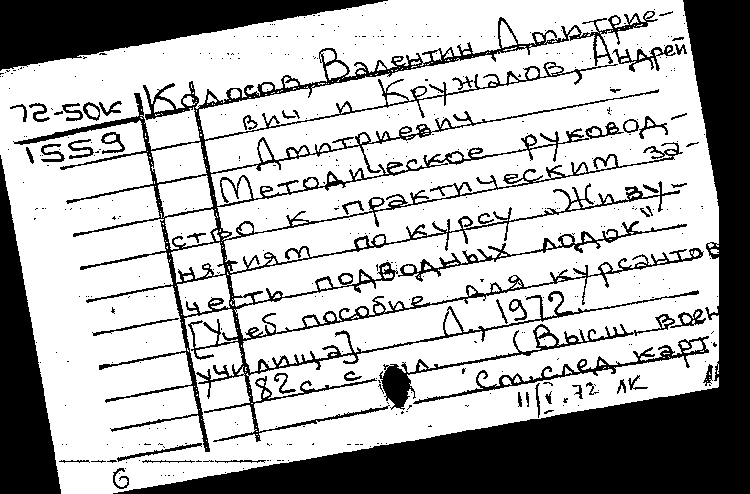 72-50к
1559
Колосов, Валентин Дмитрие-
вич и Кружалов, Андрей
Дмитриевич.
Методическое руковод-
ство к практическим за-
нятиям по курсу „Живу-
честь подводных лодок".
[Учеб. пособие для курсантов
училища]. Л., 1972.
82с. с ил. (Высш. воен
См. след. карт.
11/V.72 ЛК
6